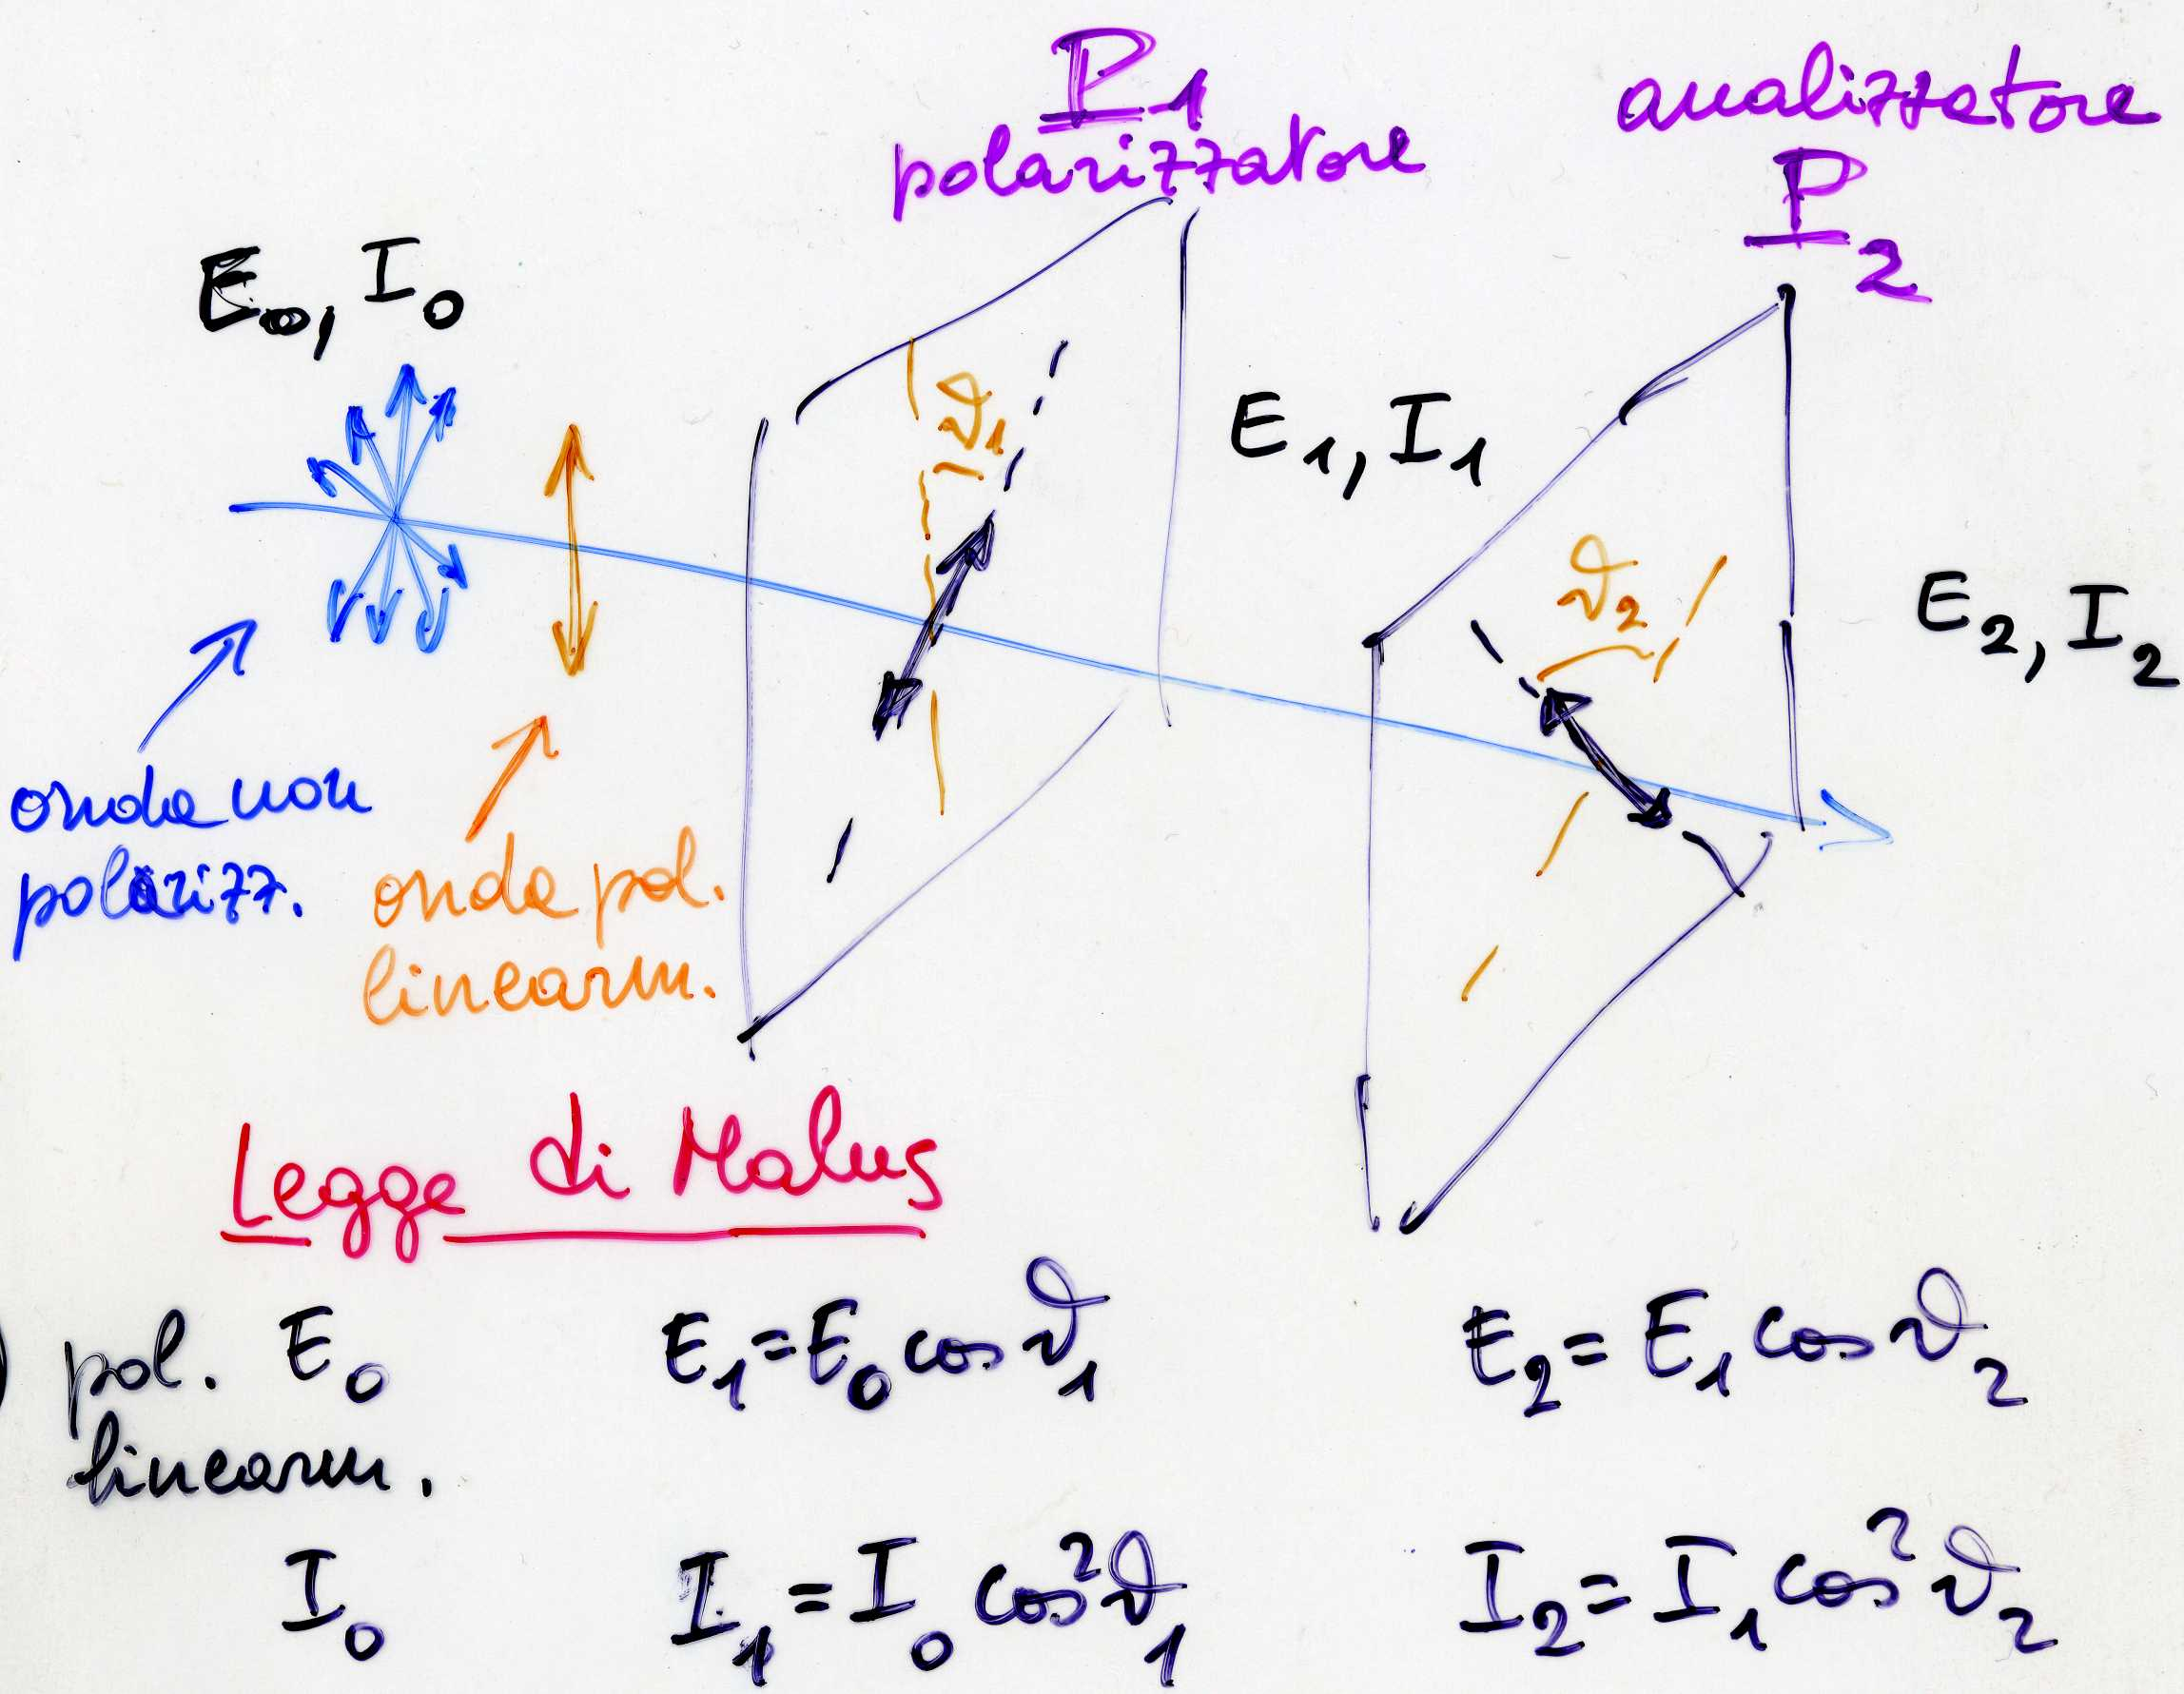 P1
polarizzatore
analizzatore
P2
E0, I0
ϑ1
E1, I1
ϑ2
E2, I2
onda non
polarizz.
onda pol.
linearm.
Legge di Malus
pol. E0
linearm.
E1=E0 cos ϑ1
E2= E1 cos ϑ2
I0
I1 = I0 cos²ϑ1
I2= I1 cos²ϑ2